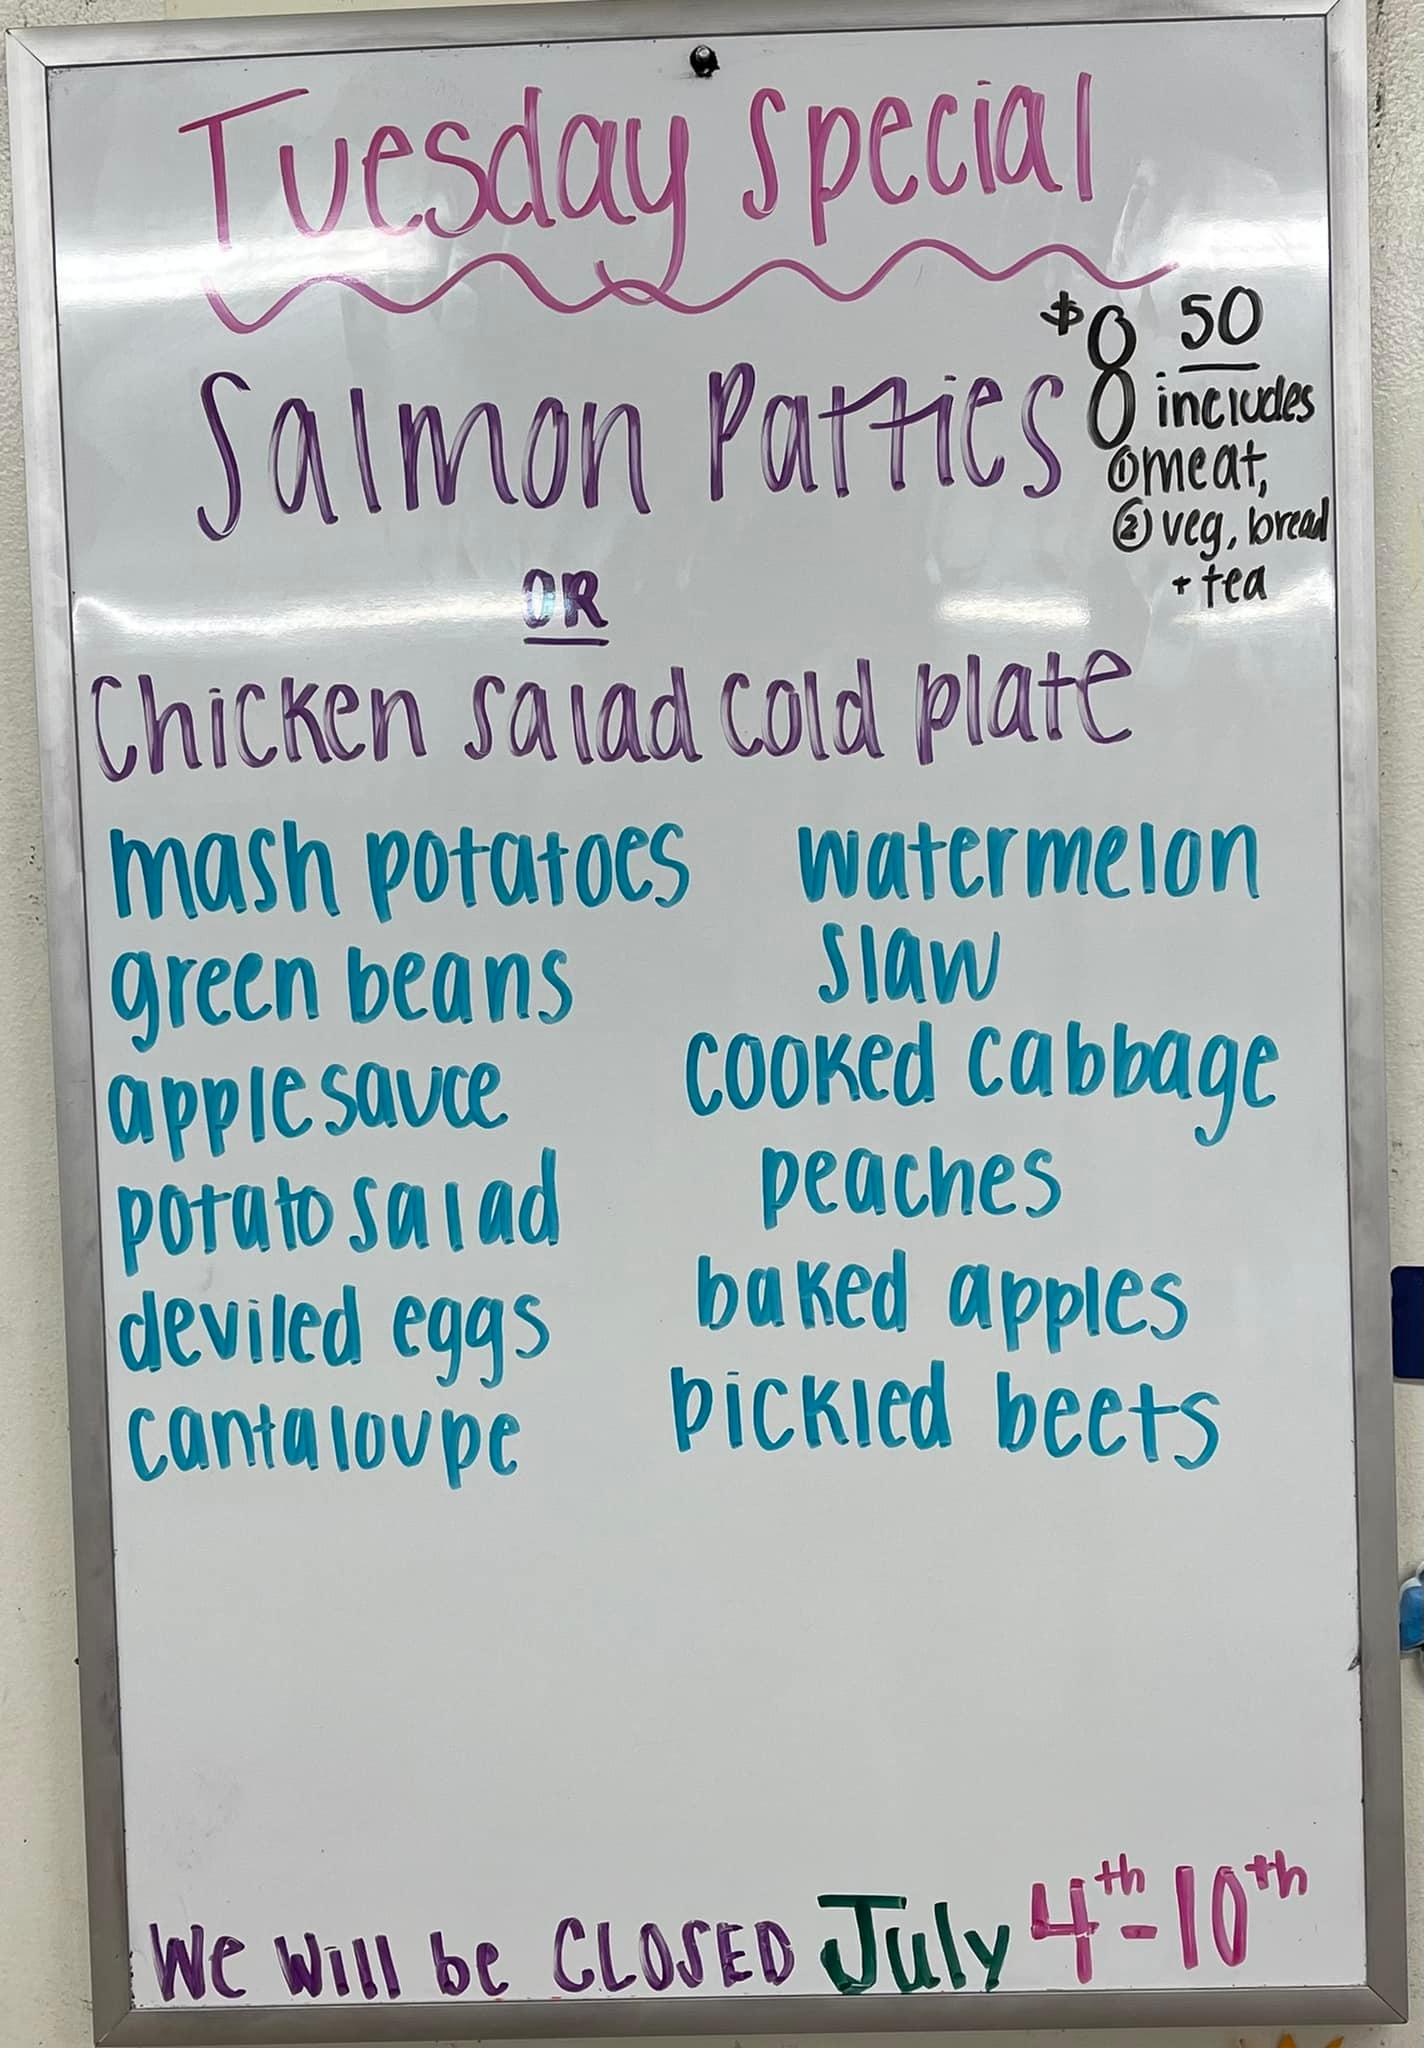 Tuesday Special
$8 50
Salmon Patties
includes
① meat,
② veg, bread
+ tea
OR
Chicken salad cold plate
mash potatoes
green beans
applesauce
potato salad
deviled eggs
cantaloupe
watermelon
slaw
cooked cabbage
peaches
baked apples
pickled beets
We will be CLOSED July 4th - 10th